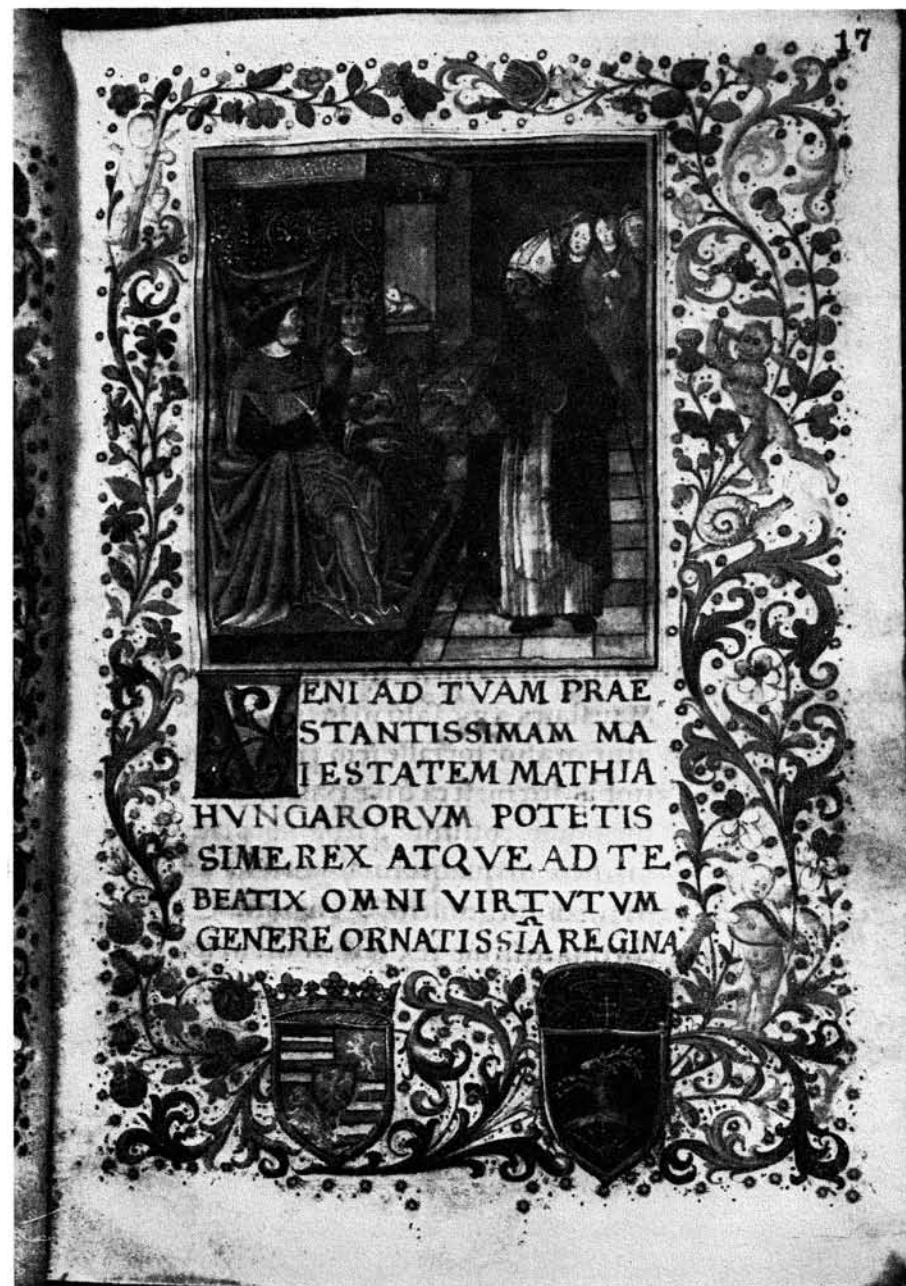 17
VENI AD TVAM PRAE
STANTISSIMAM MA
IESTATEM MATHIA
HVNGARORVM POTĒTIS
SIME REX ATQVE AD TE
BEATIX OMNI VIRTVTVM
GENERE ORNATISSIM̄A REGINA